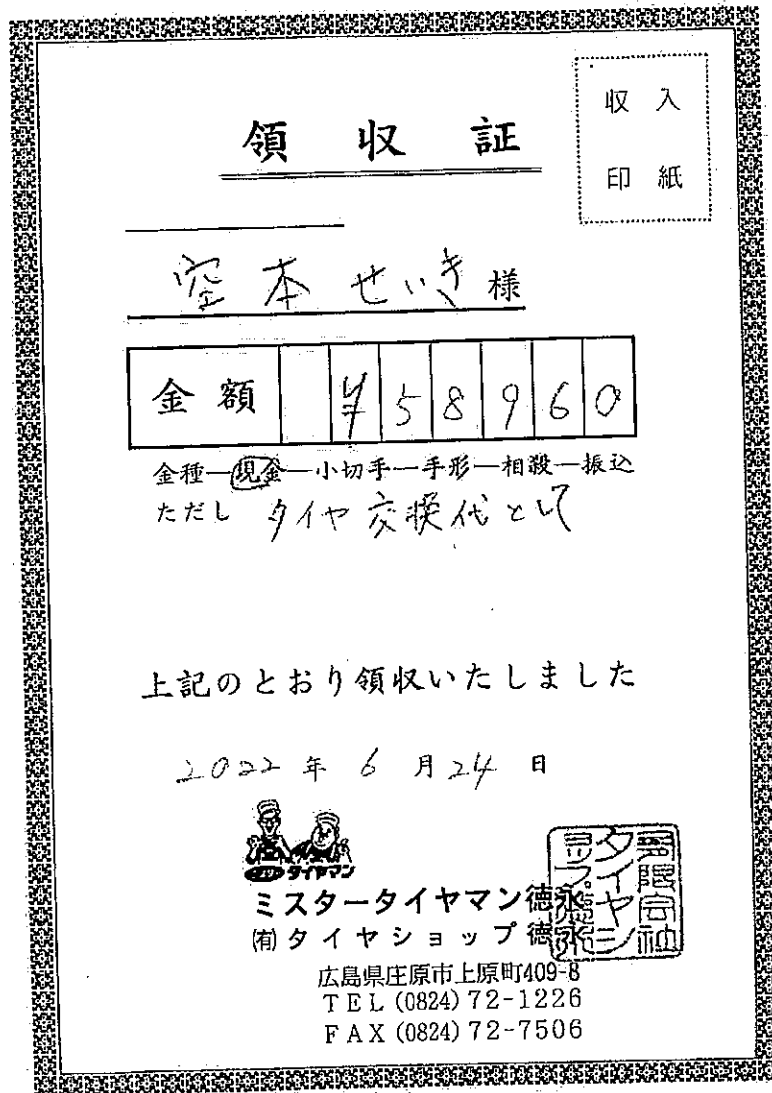 収入
印紙
領収証
空本せいき様
金額 ¥58960
金種―現金―小切手―手形―相殺―振込
ただし タイヤ交換代として
上記のとおり領収いたしました
2022年6月24日
タイヤマン
ミスタータイヤマン徳永
(有)タイヤショップ徳永
広島県庄原市上原町409-8
TEL(0824)72-1226
FAX(0824)72-7506